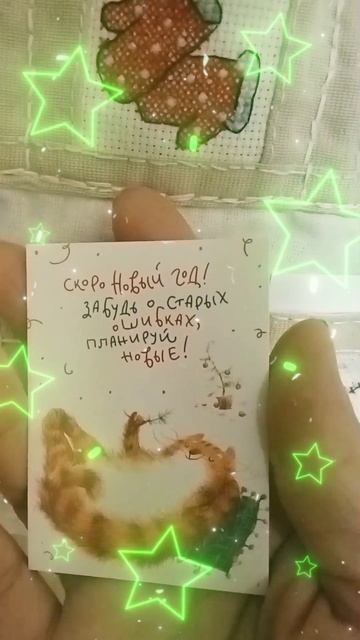 СКОРО НОВЫЙ ГОД!
ЗАБУДЬ О СТАРЫХ
ОШИБКАХ,
ПЛАНИРУЙ
НОВЫЕ!